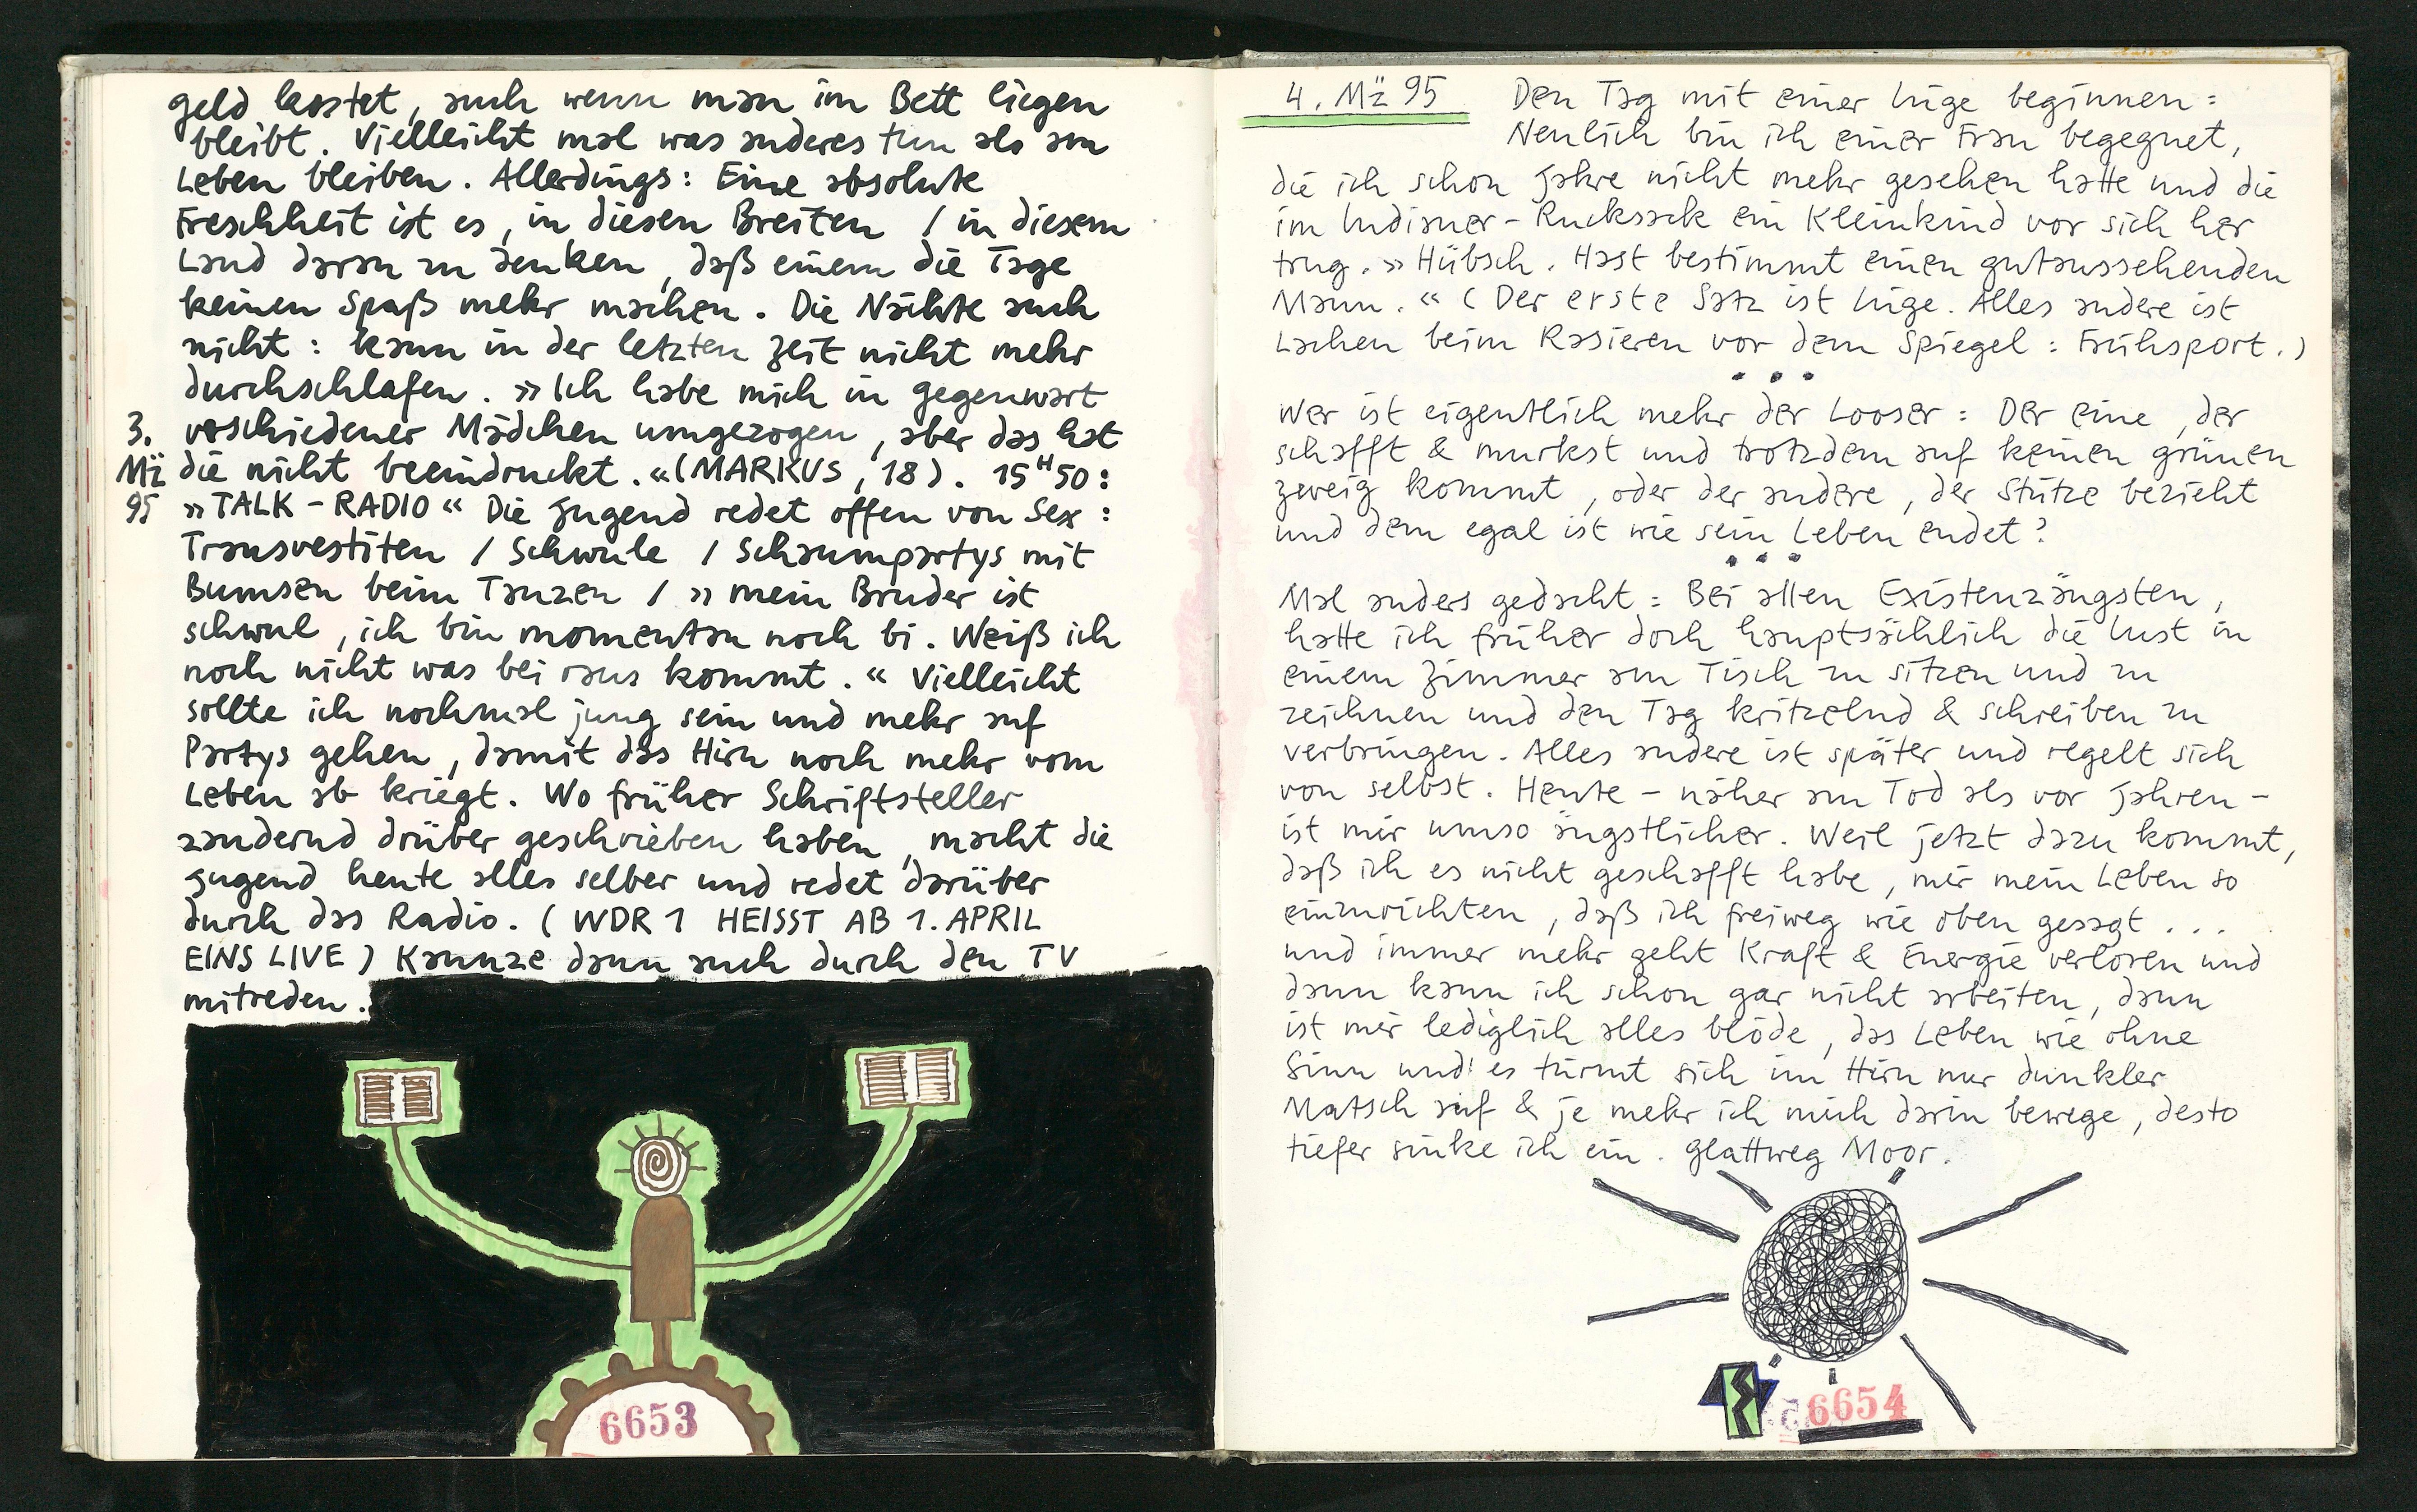 geld kostet, auch wenn man im Bett liegen
bleibt. Vielleicht mal was anderes tun als am
Leben bleiben. Allerdings: Eine absolute
Frechheit ist es, in diesen Breiten / in diesem
Land daran zu denken, daß einem die Tage
keinen Spaß mehr machen. Die Nächte auch
nicht: kann in der letzten Zeit nicht mehr
durchschlafen. »Ich habe mich in Gegenwart
3. verschiedener Mädchen umgezogen, aber das hat
Mz die nicht beeindruckt.« (MARKUS, 18). 15H50:
95 »TALK-RADIO« Die Jugend redet offen von Sex:
Transvestiten / Schwule / Schaumpartys mit
Bumsen beim Tanzen / »mein Bruder ist
schwul, ich bin momentan noch bi. Weiß ich
noch nicht was bei raus kommt.« Vielleicht
sollte ich nochmal jung sein und mehr auf
Partys gehen, damit das Hirn noch mehr vom
Leben ab kriegt. Wo früher Schriftsteller
zaudernd drüber geschrieben haben, macht die
Jugend heute alles selber und redet darüber
durch das Radio. (WDR 1 HEISST AB 1. APRIL
EINS LIVE) Kannze dann auch durch den TV
mitreden.
6653
4. Mz 95 Den Tag mit einer Lüge beginnen:
Neulich bin ich einer Frau begegnet,
die ich schon Jahre nicht mehr gesehen hatte und die
im Indianer-Rucksack ein Kleinkind vor sich her
trug. »Hübsch. Hast bestimmt einen gutaussehenden
Mann.« (Der erste Satz ist Lüge. Alles andere ist
Lachen beim Rasieren vor dem Spiegel: Frühsport.)
• • •
Wer ist eigentlich mehr der Looser: Der eine, der
schafft & murkst und trotzdem auf keinen grünen
Zweig kommt, oder der andere, der Stütze bezieht
und dem egal ist wie sein Leben endet?
• • •
Mal anders gedacht: Bei allen Existenzängsten,
hatte ich früher doch hauptsächlich die Lust in
einem Zimmer am Tisch zu sitzen und zu
zeichnen und den Tag kritzelnd & schreiben zu
verbringen. Alles andere ist später und regelt sich
von selbst. Heute - näher am Tod als vor Jahren -
ist mir umso ängstlicher. Weil jetzt dazu kommt,
daß ich es nicht geschafft habe, mir mein Leben so
einzurichten, daß ich freiweg wie oben gesagt ...
und immer mehr geht Kraft & Energie verloren und
dann kann ich schon gar nicht arbeiten, dann
ist mir lediglich alles blöde, das Leben wie ohne
Sinn und es türmt sich im Hirn nur dunkler
Matsch auf & je mehr ich mich darin bewege, desto
tiefer sinke ich ein. Glattweg Moor.
6654